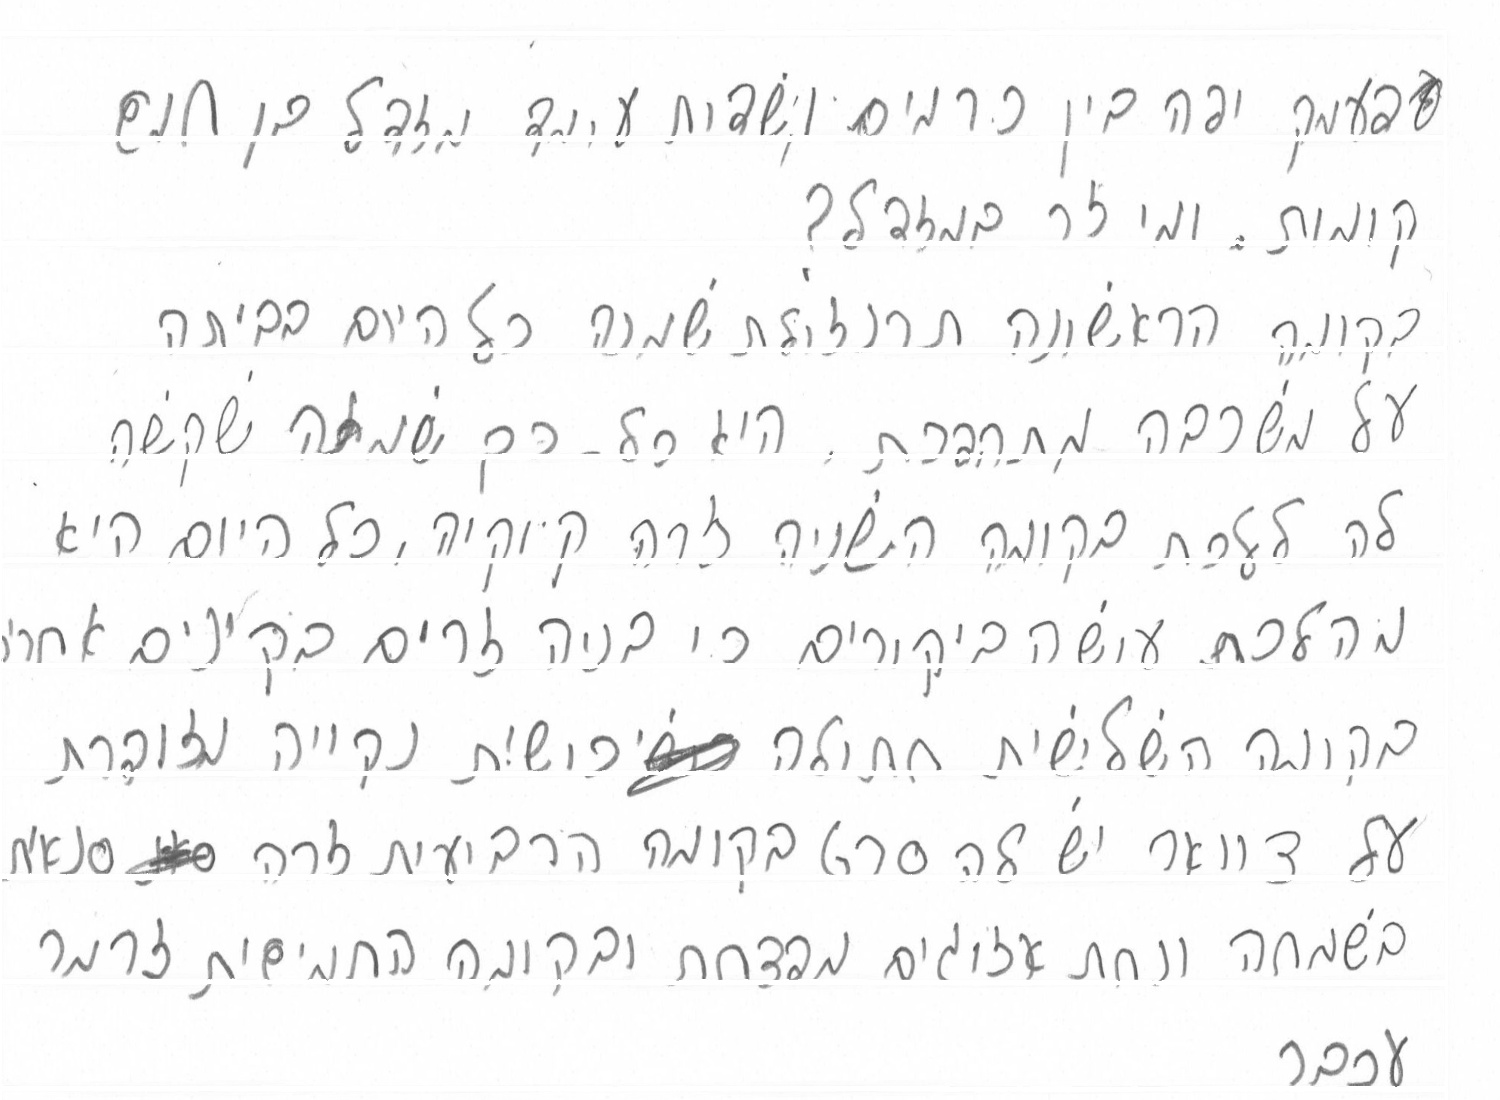 בעמק יפה בין כרמים ושדות עומד מגדל בן חמש
קומות. ומי גר במגדל?
בקומה הראשונה תרנגולת שמנה כל היום בביתה
על משכבה מתהפכת. היא כל-כך שמנה שקשה
לה ללכת בקומה השניה גרה קוקיה, כל היום היא
מהלכת עושה ביקורים כי בניה גרים בקינים
בקומה השלישית חתולה כושית נקייה מגונדרת
על צוואר יש לה סרט בקומה הרביעית גרה סנאית
בשמחה ונחת אגוזים מפצחת ובקומה החמישית גר מר
עכבר